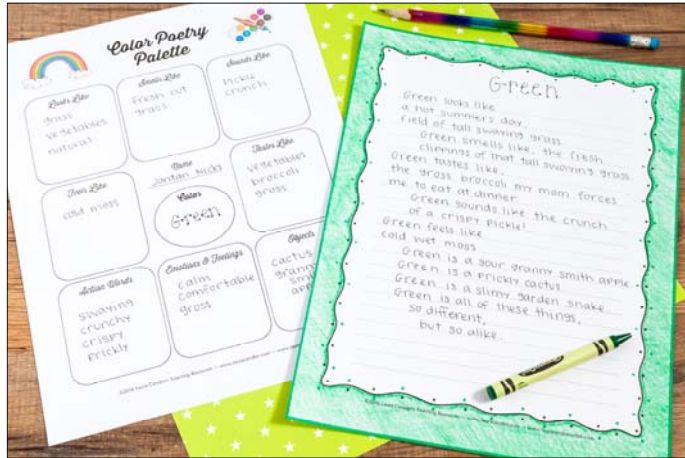 Color Poetry
Palette
Looks Like
grass
vegetables
natural
Smells Like
fresh cut
grass
Sounds Like
pickle
crunch
Feels Like
cold moss
Name
Jordan Nicks
Color
Green
Tastes Like
vegetables
broccoli
gross
Action Words
swaying
crunchy
crispy
prickly
Emotions & Feelings
calm
comfortable
gross
Objects
cactus
granny
Green
Green looks like
a hot summers day
field of tall swaying grass
Green smells like, the fresh
clippings of that tall swaying grass
Green tastes like
the gross broccoli my mom forces
me to eat at dinner
Green sounds like the crunch
of a crispy pickle!
Green feels like
cold wet moss
Green is a sour granny smith apple
Green is a prickly cactus
Green is a slimy garden snake
Green is all of these things,
so different,
but so alike.